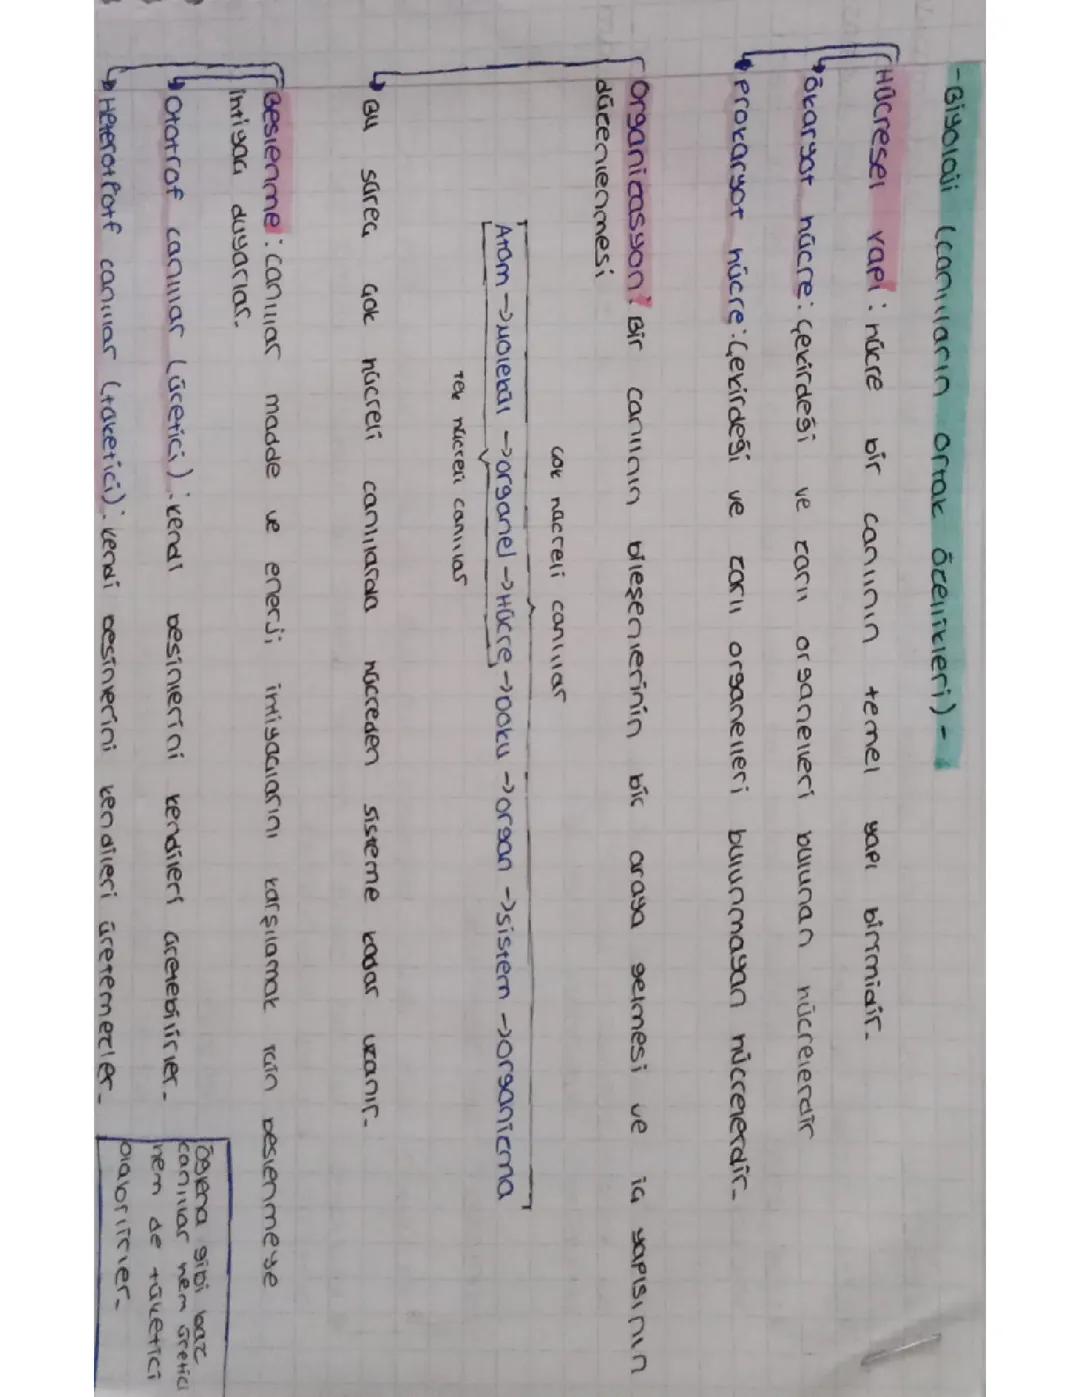 -Biyoloji (canlıların ortak özellikleri)-
Hücresel yapı: hücre bir canlının temel yapı birimidir.
Ökaryot hücre: Çekirdeği ve zarlı organelleri buluna hücrelerdir
Prokaryot hücre: Çekirdeği ve zarlı organelleri bulunmayan hücrelerdir.
Organizasyon: Bir canlının bileşenlerinin bir araya gelmesi ve iç yapısının
düzenlenmesi
çok hücreli canlılar
Atom → Molekül → organel → Hücre → Doku → organ → sistem → organizma
Tek hücreli canlılar
Bu süreç çok hücreli canlılarda hücreden sisteme kadar uzanır.
Beslenme: canlılar madde ve enerji intiyaçlarını karşılamak için beslenmeye
intiyaç duyarlar.
Ototrof canlılar (üretici): kendi besinlerini kendileri üretebilirler.
Heterotrotf canlılar (tüketici): kendi besinlerini kendileri üretemezler.
Öglena gibi baz
canlılar hem üretici
hem de tüketici
olabirirler.